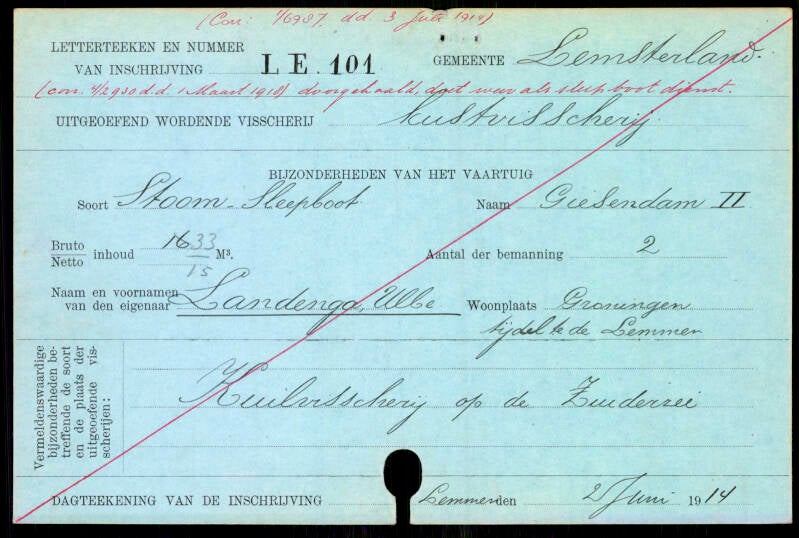 (Corr. 4/6987, d.d. 3 Juli 1914)
LETTERTEEKEN EN NUMMER
VAN INSCHRIJVING LE. 101 GEMEENTE Lemsterland.
(corr. 4/2930 d.d. 1 Maart 1918) doorgehaald, doet weer als sleepboot dienst.
UITGEOEFEND WORDENDE VISSCHERIJ kustvisscherij
BIJZONDERHEDEN VAN HET VAARTUIG
Soort Stoom-Sleepboot Naam Giesendam II
Bruto 1633
Netto inhoud 15 M³. Aantal der bemanning 2
Naam en voornamen
van den eigenaar Landenga, Ulbe Woonplaats Groningen
tijdel. te de Lemmer
Vermeldenswaardige
bijzonderheden be-
treffende de soort
en de plaats der
uitgeoefende vis-
scherijen:
Kuilvisscherij op de Zuiderzee
DAGTEEKENING VAN DE INSCHRIJVING Lemmer den 2 Juni 1914